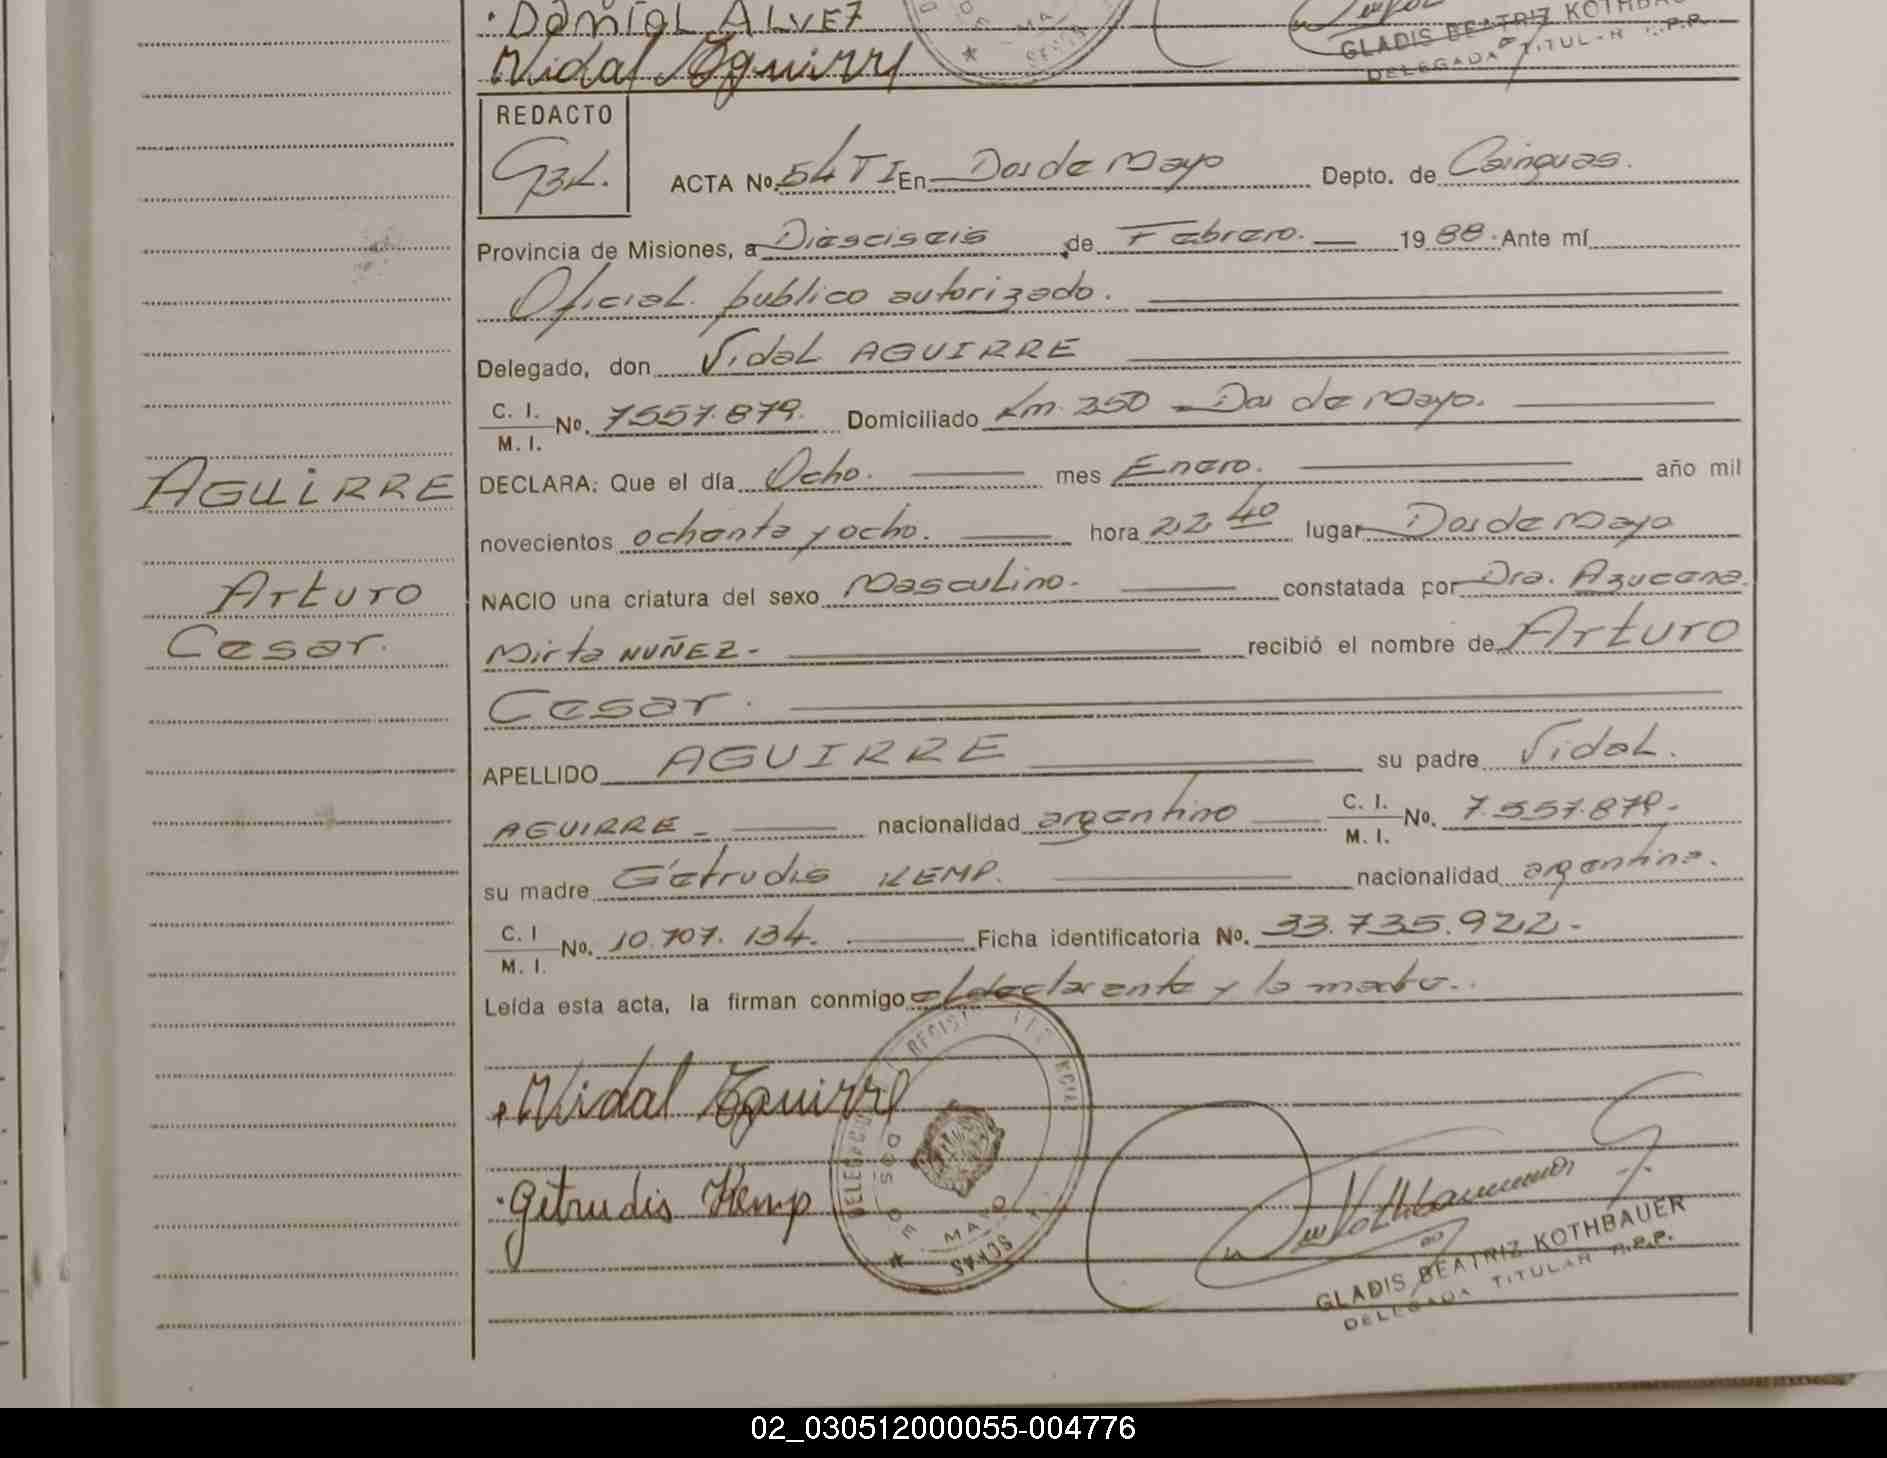 · Daniel ALVEZ
Vidal Aguirre
GLADIS BEATRIZ KOTHBAUER
DELEGADA TITULAR R.P.P.
REDACTO
GBK.
ACTA No. 54 TI En Dos de Mayo Depto. de Cainguas.
Provincia de Misiones, a Dieciseis de Febrero. 1988. Ante mí
Oficial publico autorizado.
Delegado, don Vidal AGUIRRE
C. I.
M. I. No. 7557.879. Domiciliado Km. 250 - Dos de Mayo.
AGUIRRE
DECLARA: Que el día Ocho. mes Enero. año mil
novecientos ochenta y ocho. hora 22,40 lugar Dos de Mayo
Arturo
NACIO una criatura del sexo Masculino. constatada por Dra. Azucena
Cesar.
Mirta NUÑEZ- recibió el nombre de Arturo
Cesar.
APELLIDO AGUIRRE su padre Vidal.
AGUIRRE - nacionalidad argentino C. I.
M. I. No. 7.557.879-
su madre Getrudis KEMP. nacionalidad argentina.
C. I
M. I. No. 10.707.134. Ficha identificatoria No. 33.735.922.-
Leída esta acta, la firman conmigo el declarante y la madre.
Vidal Aguirre
Getrudis Kemp
DOS DE MAYO
Kothbauer
GLADIS BEATRIZ KOTHBAUER
DELEGADA TITULAR R.P.P.
02_030512000055-004776